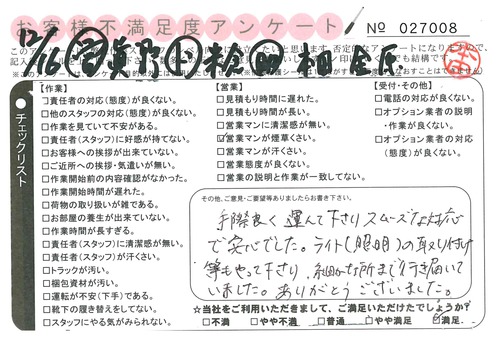 お客様不満足度アンケート
№ 027008
12/16
チェックリスト
【作業】
□責任者の対応(態度)が良くない。
□他のスタッフの対応(態度)が良くない。
□作業を見ていて不安がある。
□責任者(スタッフ)に好感が持てない。
□お客様への挨拶が出来ていない。
□ご近所への挨拶・気遣いが無い。
□作業開始前の内容確認がなかった。
□作業開始時間が遅れた。
□荷物の取り扱いが雑である。
□お部屋の養生が出来ていない。
□作業時間が長すぎる。
□責任者(スタッフ)に清潔感が無い。
□責任者(スタッフ)が汗くさい。
□トラックが汚い。
□梱包資材が汚い。
□運転が不安(下手)である。
□靴下の履き替えをしてない。
□スタッフにやる気がみられない。
【営業】
□見積もり時間に遅れた。
□見積もり時間が長い。
□営業マンに清潔感が無い。
☑営業マンが煙草くさい。
□営業マンが汗くさい。
□営業態度が良くない。
□営業の説明と作業が一致してない。
【受付・その他】
□電話の対応が良くない。
□オプション業者の説明
・作業が良くない。
□オプション業者の対応
(態度)が良くない。
その他、ご意見・ご要望等ありましたらお書き下さい。
手際良く運んで下さりスムーズな対応
で安心でした。ライト(照明)の取り付け
等もやって下さり、細かい所まで行き届いて
いました。ありがとうございました。
☆当社をご利用いただきまして、ご満足いただけたでしょうか?
□不満 □やや不満 □普通 □やや満足 ☑満足